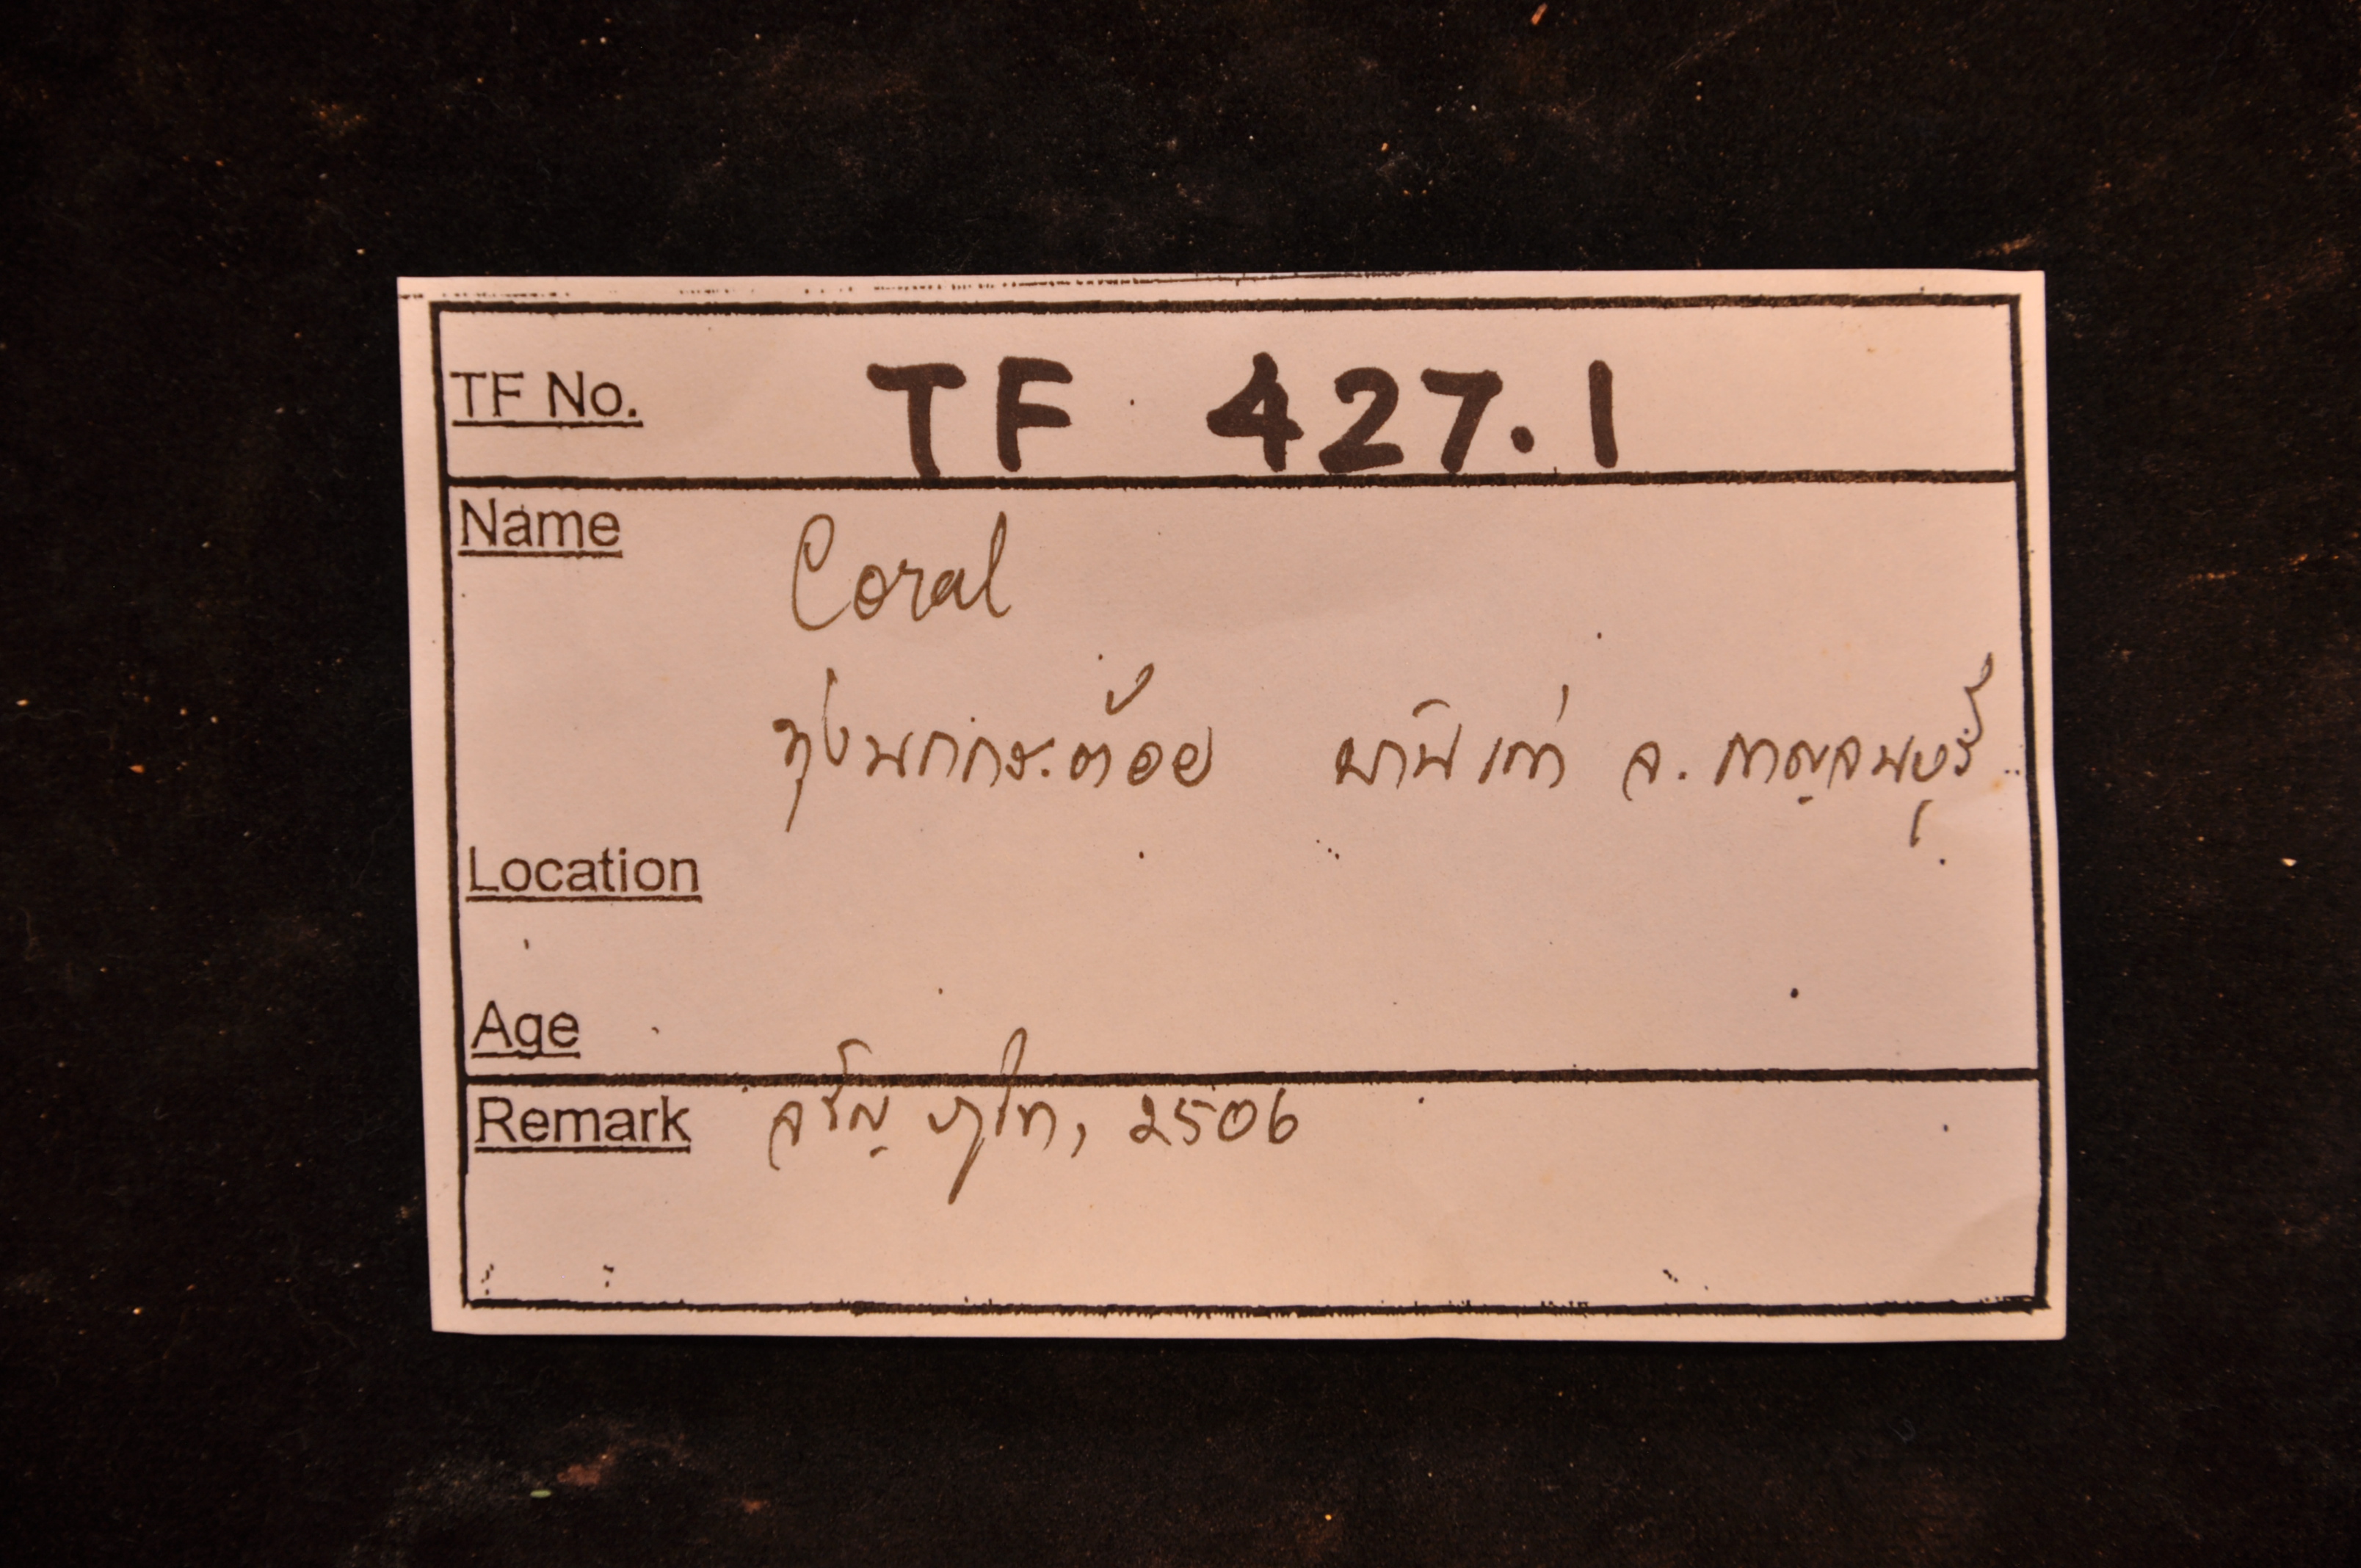 TF No. TF 427.1
Name
Coral
ทุ่งนกกระต้อย พานิเก่า จ. กาญจนบุรี
Location
Age
Remark จรัญ, 2506